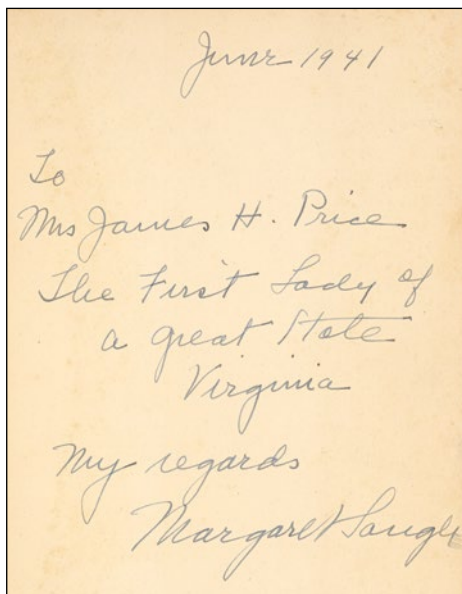 June 1941
To
Mrs James H. Price
The First Lady of
a great State
Virginia
My regards
Margaret